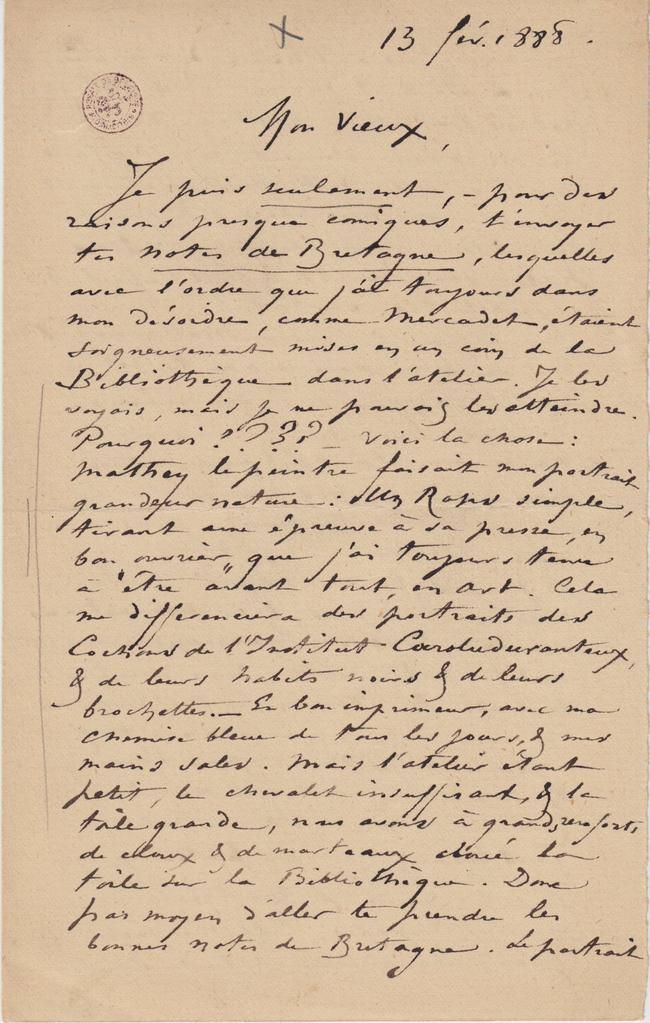 13 fév. 1888.
Mon Vieux,
Je puis seulement, - pour des
raisons presque comiques, t'envoyer
tes notes de Bretagne, lesquelles
avec l'ordre que j'ai toujours dans
mon désordre, comme Mercadet, étaient
soigneusement mises en un coin de la
Bibliothèque dans l'atelier. Je les
voyais, mais je ne pouvais les atteindre.
Pourquoi ???? _ Voici la chose :
Mathey le peintre faisait mon portrait
grandeur nature : Un Rops simple,
tirant une épreuve à sa presse, en
bon ouvrier, que j'ai toujours tenu
à "être" avant tout, en art. Cela
me differenciera des portraits des
Cochons de l'Institut Caroluduranteux,
& de leurs habits noirs & de leurs
brochettes. _ En bon imprimeur, avec ma
chemise bleue de tous les jours, & mes
mains sales. Mais l'atelier étant
petit, le chevalet insuffisant, & la
toile grande, nous avons à grands renforts
de cloux & de marteaux cloué la
toile sur la Bibliothèque. Donc
pas moyen d'aller te prendre les
bonnes notes de Bretagne. Le portrait